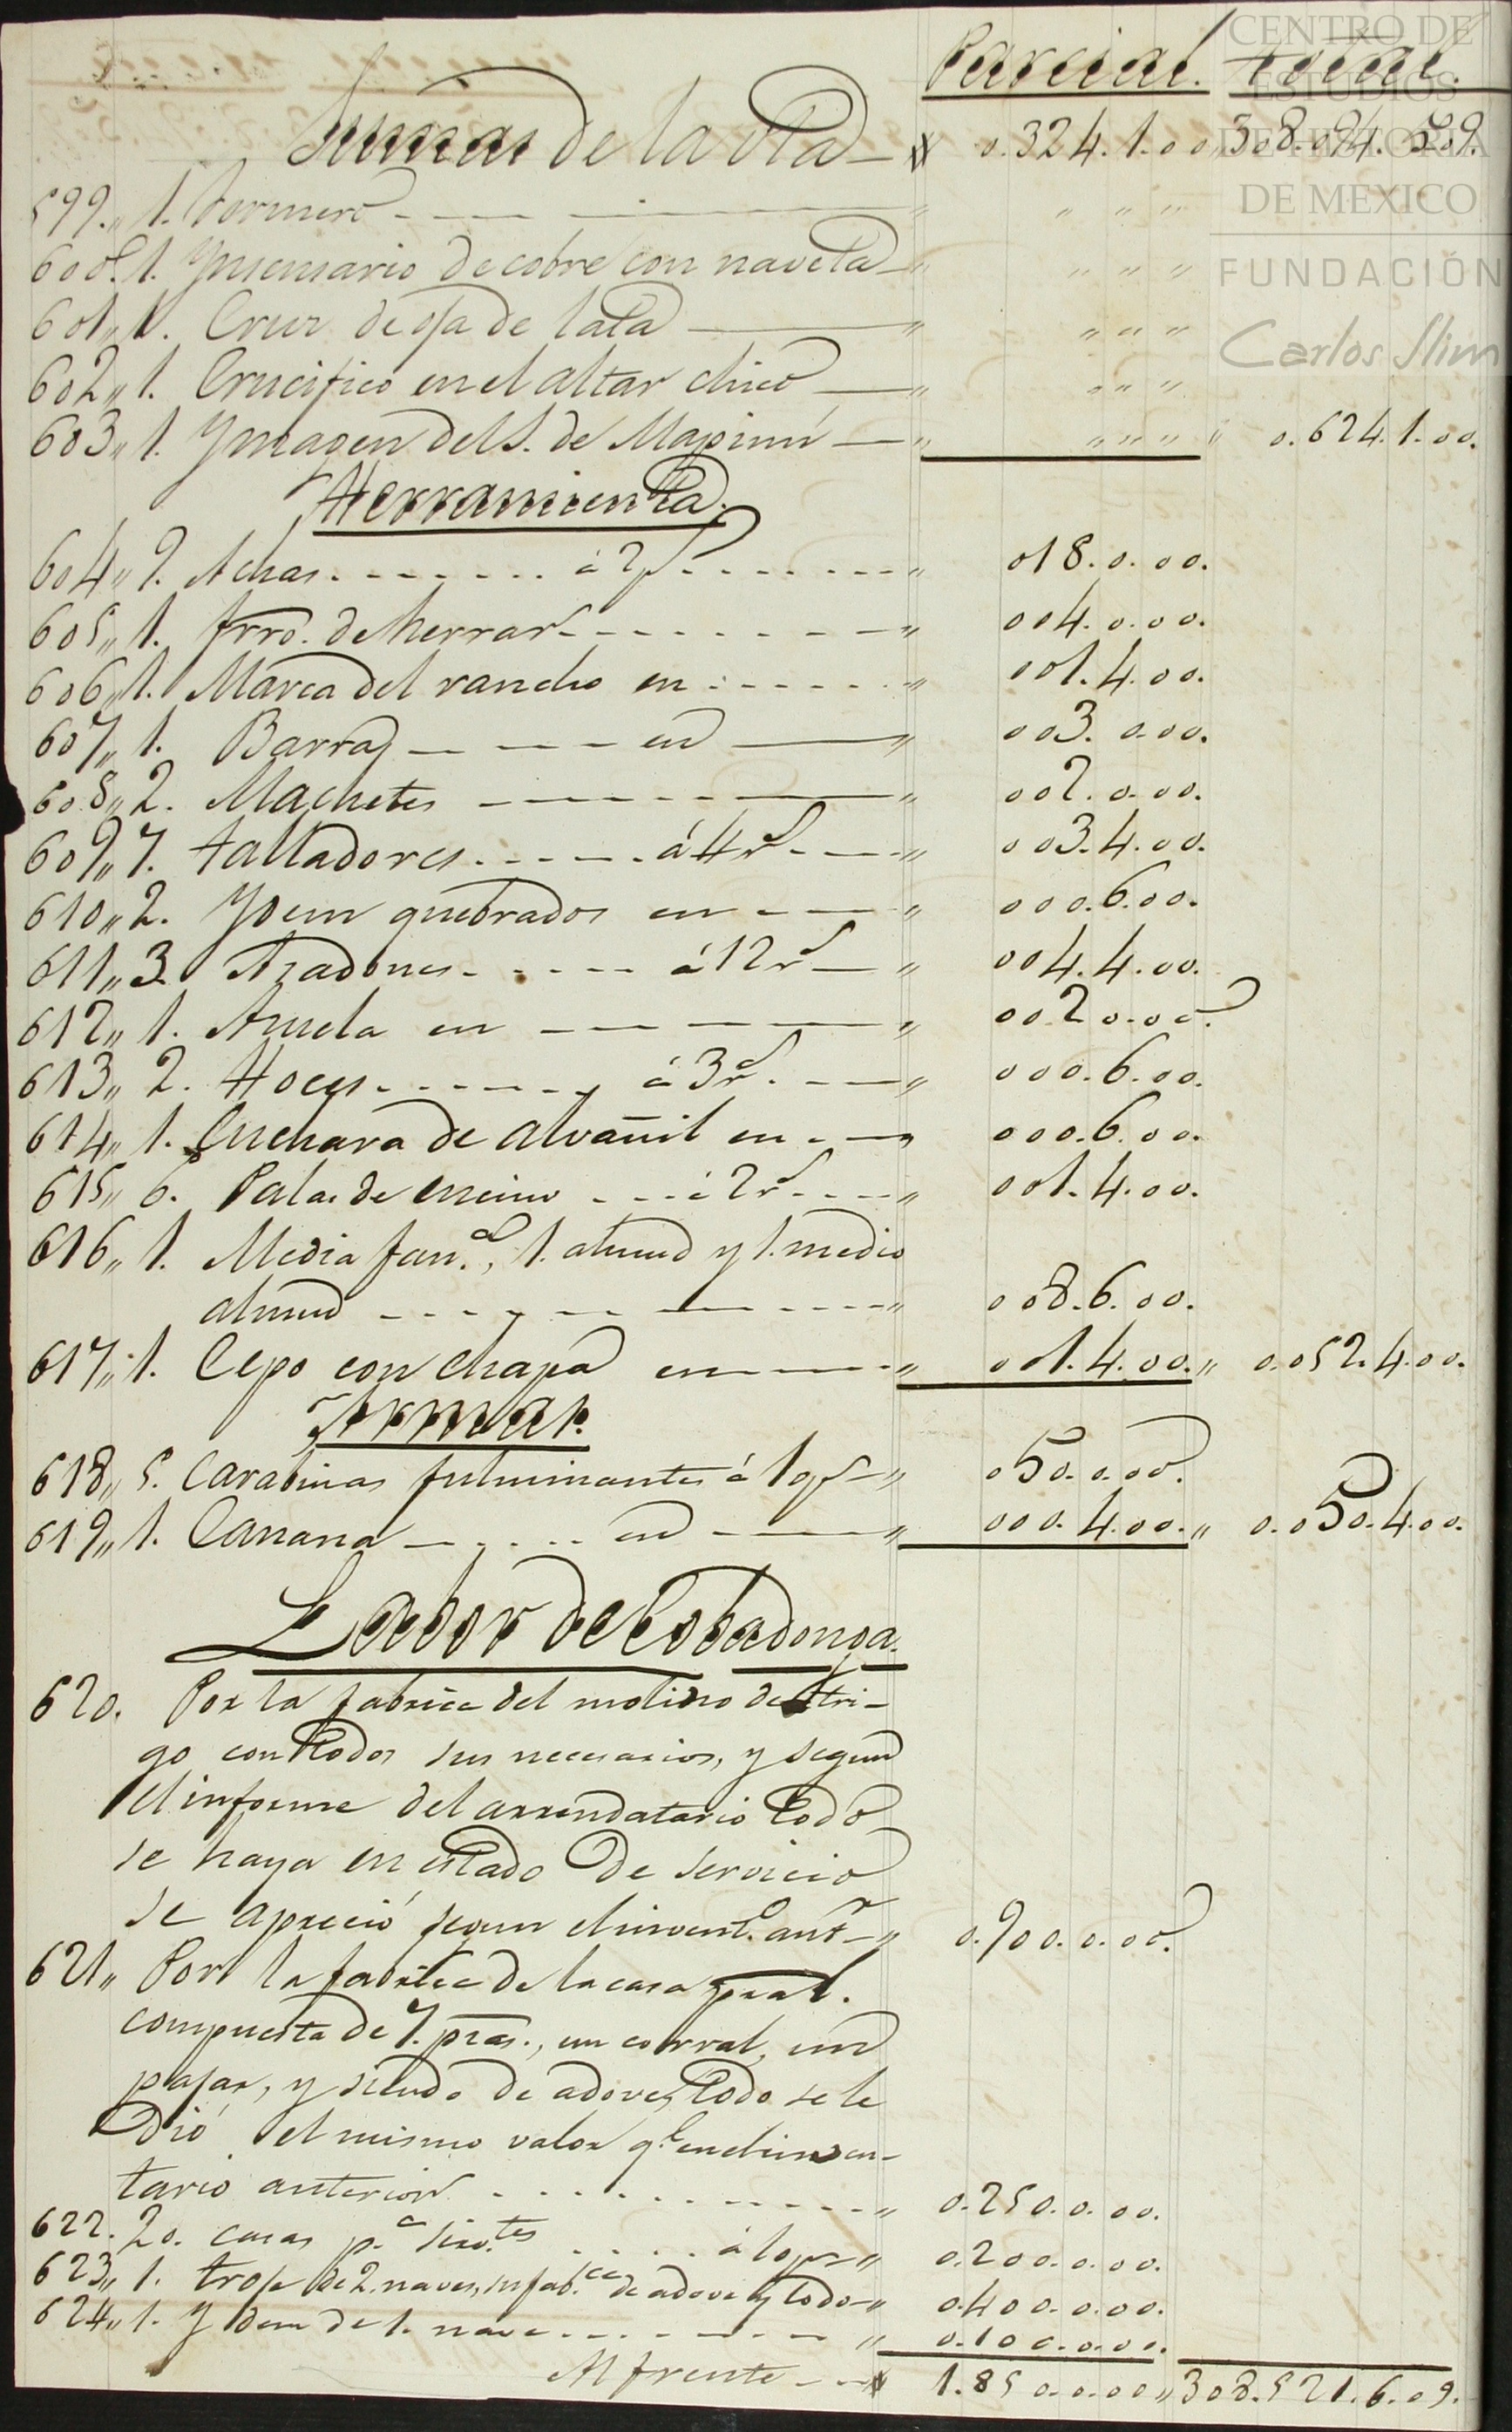 Parcial. Total.
Sumas de la Vta — 0.324.1.00 308.094.5.09.
599.„ 1. Tormero — „ „ „
600„ 1. Ynsensario de cobre con naveta — „ „ „
601„ 1. Cruz de oja de lata — „ „ „
602„ 1. Crucifico en el altar chico — „ „ „
603„ 1. Ymagen del S. de Mapimí — „ „ „ „ 0.624.1.00.
Herramienta.
604„ 9. Achas. - - - - - á 2ps - - - - „ 018.0.00.
605„ 1. Frro. de herrar - - - - - „ 004.0.00.
606„ 1. Marca del rancho en - - - - „ 001.4.00.
607„ 1. Barra — — en — „ 003.0.00.
608„ 2. Machetes — — — „ 002.0.00.
609„ 7. Talladores. - - - - á 4 rs - — „ 003.4.00.
610„ 2. Ydem quebrados en - — „ 000.6.00.
611„ 3. Asadones - - - - á 12 rs — „ 004.4.00.
612„ 1. Asuela en — — — „ 002.0.00.
613„ 2. Hoces - - - - - á 3 rs. - — „ 000.6.00.
614„ 1. Cuchara de alvañil en - — „ 000.6.00.
615„ 6. Palas de encino - - - á 2 rs - - - „ 001.4.00.
616„ 1. Media fan.a, 1. almud y 1. medio
almud - - - - - - - - „ 008.6.00.
617„ 1. Cepo con chapa en — - „ 001.4.00.„ 0.052.4.00.
Armas.
618„ 5. Carabinas fulminantes á 10 ps — „ 050.0.00.
619„ 1. Canana — - - - en — „ 000.4.00.„ 0.050.4.00.
Labor de Cobadonga.
620. Por la fabrica del molino de tri-
go con todos sus necesarios, y segun
el informe del arrendatario todo
se haya en estado de servicio
se apreció segun el invent.o ant.r — „ 0.900.0.00.
621„ Por la fabrica de la casa pral.
compuesta de 7. pzas., un corral, un
pajar, y siendo de adoves, todo se le
dió el mismo valor q.e en el inven-
tario anterior - - - - - - - - „ 0.250.0.00.
622. 20. casas p.a sirv.tes - - - - á 10 ps „ 0.200.0.00.
623„ 1. troje de 2. naves, su fab.ca de adove y lodo - „ 0.400.0.00.
624„ 1. Ydem de 1. nave - - - - - - „ 0.100.0.00.
Al frente - - 1.850.0.00„ 308.821.6.09.
CENTRO DE
ESTUDIOS
DE HISTORIA
DE MEXICO
FUNDACIÓN
Carlos Slim